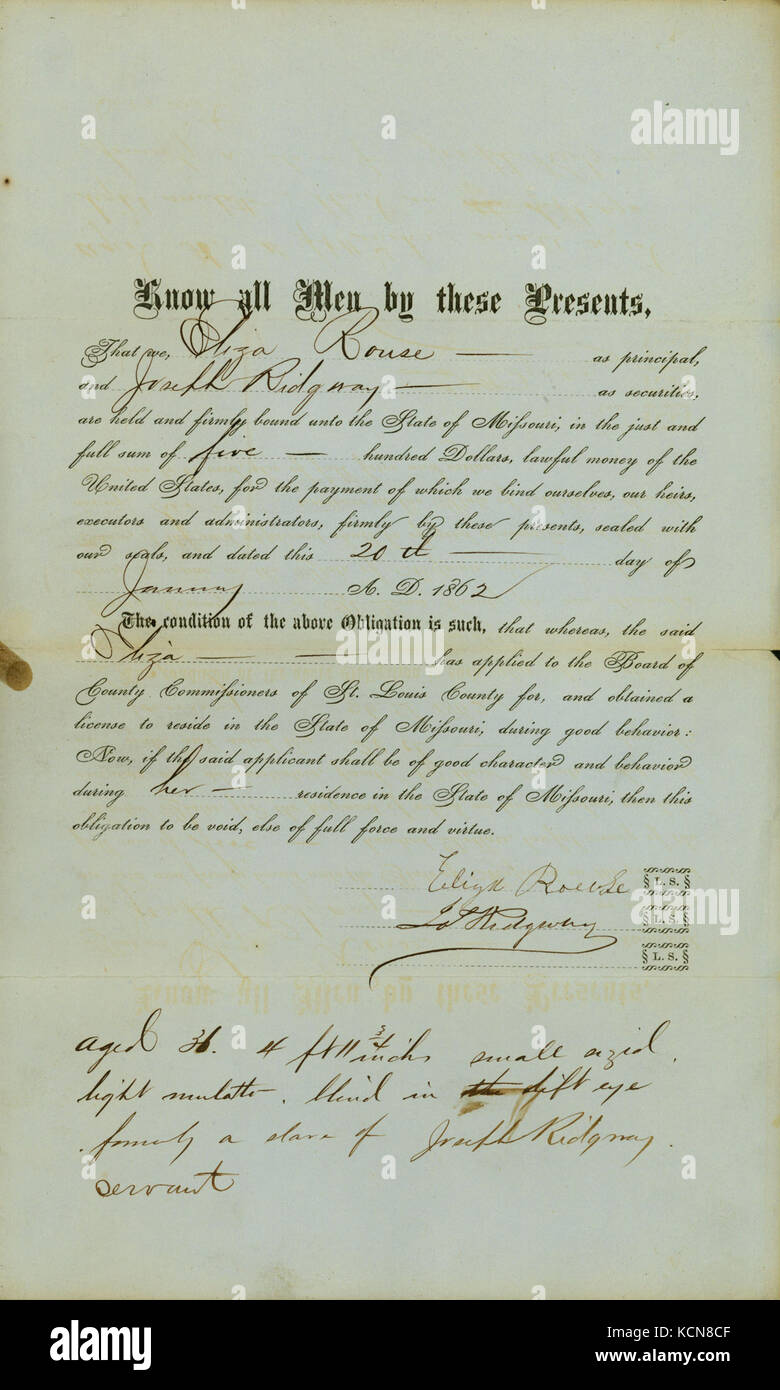 Know all Men by these Presents,
That we, Eliza Rouse — as principal,
and Joseph Ridgway — as securities,
are held and firmly bound unto the State of Missouri, in the just and
full sum of five — hundred Dollars, lawful money of the
United States, for the payment of which we bind ourselves, our heirs,
executors and administrators, firmly by these presents, sealed with
our seals, and dated this 20th — day of
January A. D. 1862
The condition of the above Obligation is such, that whereas, the said
Eliza — — has applied to the Board of
County Commissioners of St. Louis County for, and obtained a
license to reside in the State of Missouri, during good behavior:
Now, if the said applicant shall be of good character and behavior
during her — residence in the State of Missouri, then this
obligation to be void, else of full force and virtue.
Eliza Rouse L. S.
Jos Ridgway L. S.
L. S.
aged 36. 4 ft 11 3/4 inches small sized.
light mulatto. blind in the left eye
formerly a slave of Joseph Ridgway.
servant
a alamy
alamy
Image ID: KCN8CF
www.alamy.com